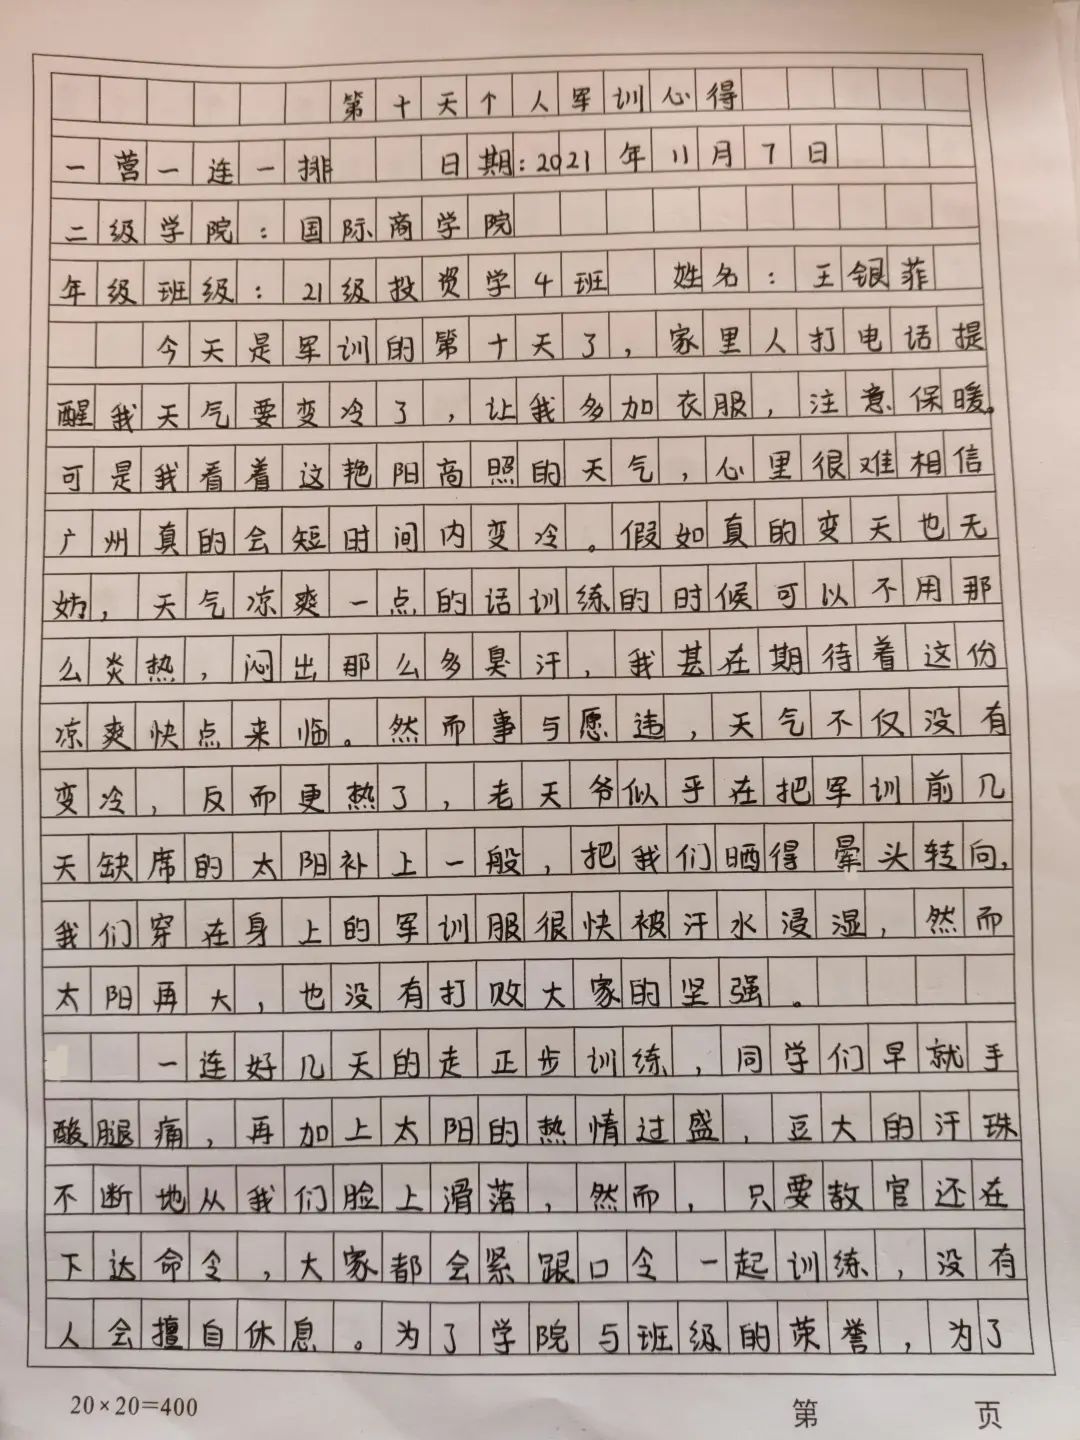 第十天个人军训心得
一营一连一排 日期:2021年11月7日
二级学院:国际商学院
年级班级:21级投资学4班 姓名:王银菲
今天是军训的第十天了,家里人打电话提
醒我天气要变冷了,让我多加衣服,注意保暖。
可是我看着这艳阳高照的天气,心里很难相信
广州真的会短时间内变冷。假如真的变天也无
妨,天气凉爽一点的话训练的时候可以不用那
么炎热,闷出那么多臭汗,我甚在期待着这份
凉爽快点来临。然而事与愿违,天气不仅没有
变冷,反而更热了,老天爷似乎在把军训前几
天缺席的太阳补上一般,把我们晒得晕头转向,
我们穿在身上的军训服很快被汗水浸湿,然而
太阳再大,也没有打败大家的坚强。
一连好几天的走正步训练,同学们早就手
酸腿痛,再加上太阳的热情过盛,豆大的汗珠
不断地从我们脸上滑落,然而,只要教官还在
下达命令,大家都会紧跟口令一起训练,没有
人会擅自休息。为了学院与班级的荣誉,为了
20×20=400 第 页